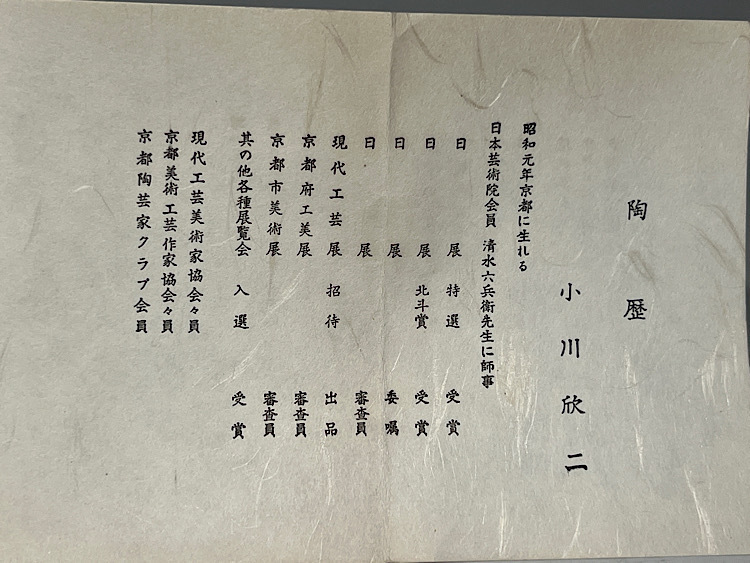 陶歴
小川欣二
昭和元年京都に生れる
日本芸術院会員 清水六兵衛先生に師事
日展 特選 受賞
日展 北斗賞 受賞
日展 委嘱
日展 審査員
現代工芸展 招待 出品
京都府工美展 審査員
京都市美術展 審査員
其の他各種展覧会 入選 受賞
現代工芸美術家協会々員
京都美術工芸作家協会々員
京都陶芸家クラブ会員